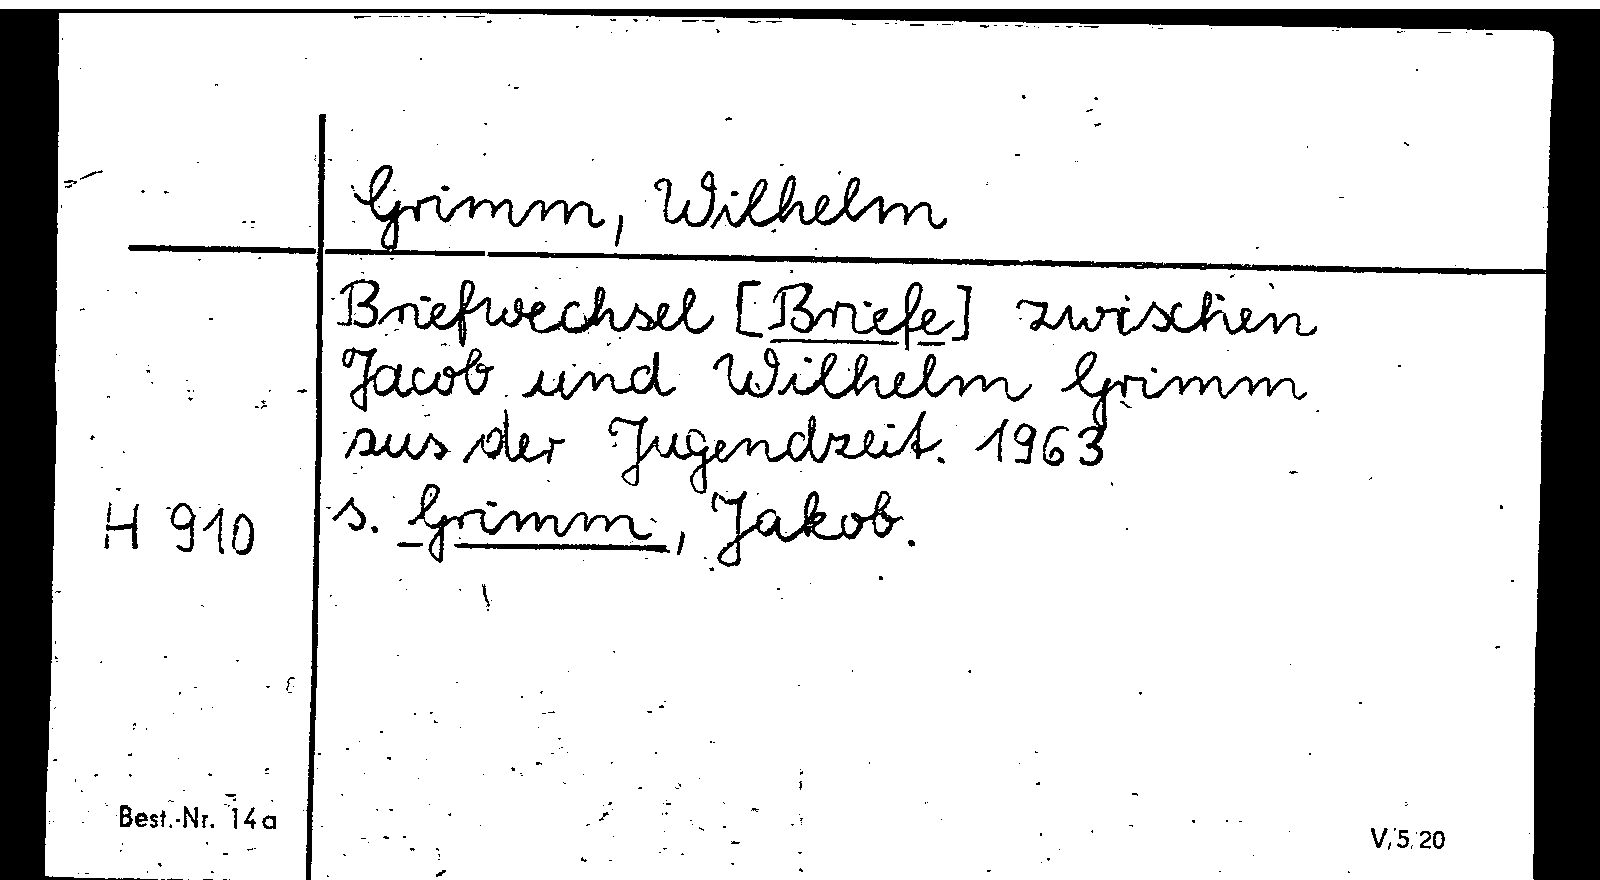 Grimm, Wilhelm
Briefwechsel [Briefe] zwischen
Jacob und Wilhelm Grimm
aus der Jugendzeit. 1963
H 910 s. Grimm, Jakob.
Best.-Nr. 14a V, 5, 20